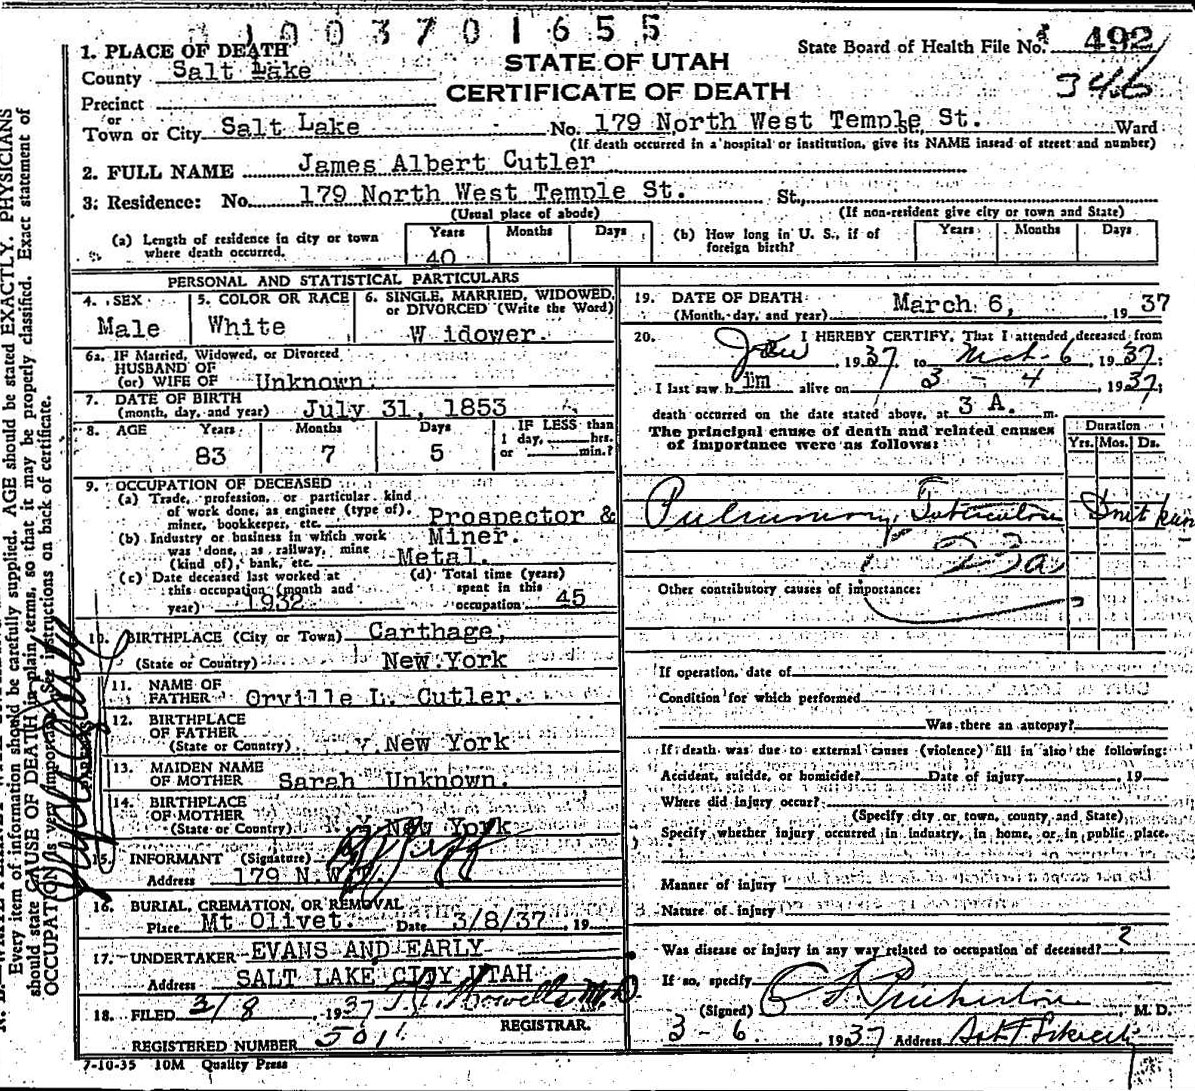 1003701655
1. PLACE OF DEATH
State Board of Health File No. 492
346
County Salt Lake
STATE OF UTAH
CERTIFICATE OF DEATH
Precinct
or
Town or City Salt Lake No. 179 North West Temple St. St., Ward
(If death occurred in a hospital or institution, give its NAME instead of street and number)
2. FULL NAME James Albert Cutler
3. Residence: No. 179 North West Temple St. St.,
(Usual place of abode) (If non-resident give city or town and State)
(a) Length of residence in city or town where death occurred. Years 40 Months Days
(b) How long in U. S., if of foreign birth? Years Months Days
PERSONAL AND STATISTICAL PARTICULARS
4. SEX Male
5. COLOR OR RACE White
6. SINGLE, MARRIED, WIDOWED, or DIVORCED (Write the Word) Widower.
6a. IF Married, Widowed, or Divorced
HUSBAND OF
(or) WIFE OF Unknown.
7. DATE OF BIRTH
(month, day, and year) July 31, 1853
8. AGE Years 83 Months 7 Days 5
IF LESS than 1 day, hrs. or min.?
9. OCCUPATION OF DECEASED
(a) Trade, profession, or particular kind
of work done, as engineer (type of),
miner, bookkeeper, etc. Prospector &
(b) Industry or business in which work Miner.
was done, as railway, mine
(kind of), bank, etc. Metal.
(c) Date deceased last worked at
this occupation (month and
year) 1932
(d) Total time (years)
spent in this
occupation 45
10. BIRTHPLACE (City or Town) Carthage,
(State or Country) New York
11. NAME OF
FATHER Orville L. Cutler.
12. BIRTHPLACE
OF FATHER
(State or Country) New York
13. MAIDEN NAME
OF MOTHER Sarah Unknown.
14. BIRTHPLACE
OF MOTHER
(State or Country) New York
15. INFORMANT (Signature)
Address 179 N.W.T.
16. BURIAL, CREMATION, OR REMOVAL
Place Mt Olivet. Date 3/8/37 19
17. UNDERTAKER EVANS AND EARLY
Address SALT LAKE CITY UTAH
18. FILED 3/8 1937
REGISTRAR.
REGISTERED NUMBER 501
7-10-35 10M Quality Press
19. DATE OF DEATH
(Month, day, and year) March 6, 1937
20. I HEREBY CERTIFY, That I attended deceased from
Jan 1937 to Mch-6 1937;
I last saw him alive on 3-4 1937;
death occurred on the date stated above, at 3 A. m.
The principal cause of death and related causes
of importance were as follows:
Duration
Yrs. Mos. Ds.
Pulmonary Tuberculosis
23a
Other contributory causes of importance:
If operation, date of
Condition for which performed
Was there an autopsy?
If death was due to external causes (violence) fill in also the following:
Accident, suicide, or homicide? Date of injury 19
Where did injury occur?
(Specify city or town, county, and State)
Specify whether injury occurred in industry, in home, or in public place.
Manner of injury
Nature of injury
Was disease or injury in any way related to occupation of deceased? ?
If so, specify
(Signed) M. D.
3-6 1937 Address
Every item of information should be carefully supplied. AGE should be stated EXACTLY. PHYSICIANS
should state CAUSE OF DEATH in plain terms, so that it may be properly classified. Exact statement of
OCCUPATION is very important. See instructions on back of certificate.